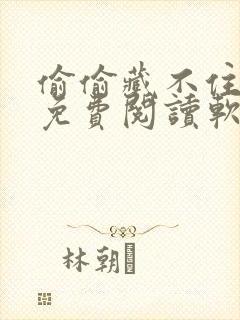 偷偷藏不住
免費閱讀軟
林朝